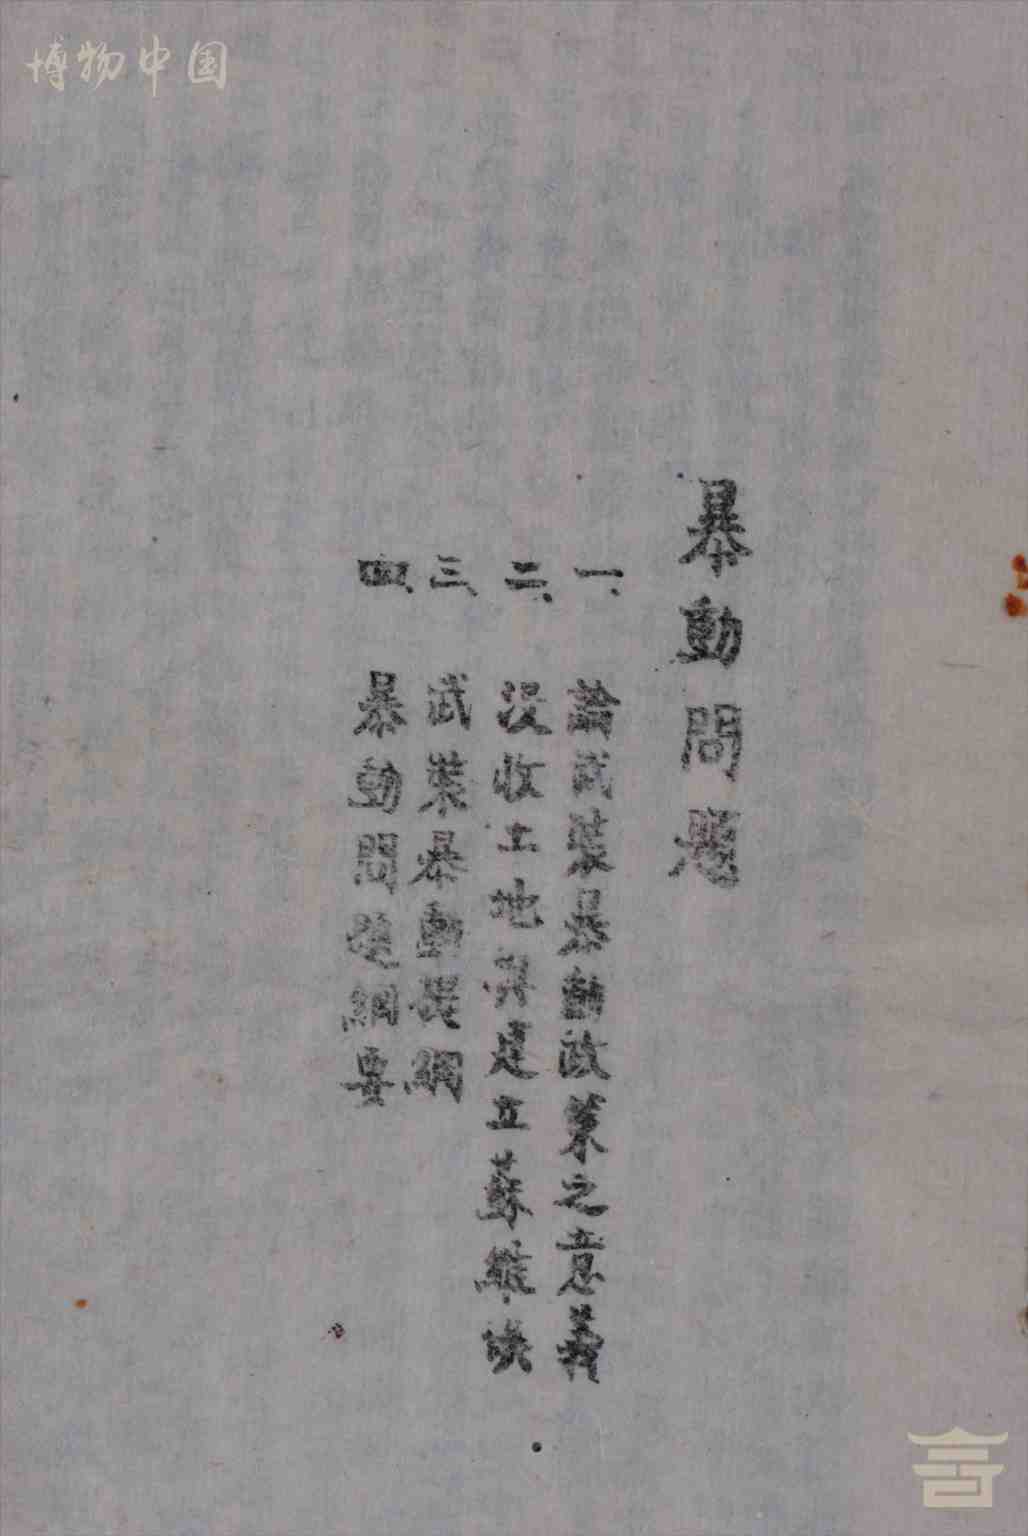 博物中国
暴動問題
一、論武裝暴動政策之意義
二、没收土地與建立蘇維埃
三、武裝暴動提綱
四、暴動問題綱要